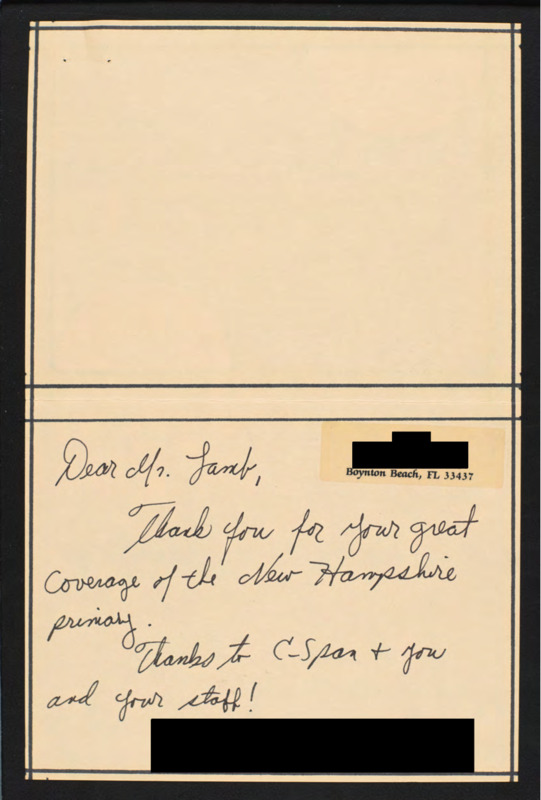 Boynton Beach, FL 33437
Dear Mr. Lamb,
Thank you for your great
coverage of the New Hampshire
primary.
Thanks to C-Span + you
and your staff!